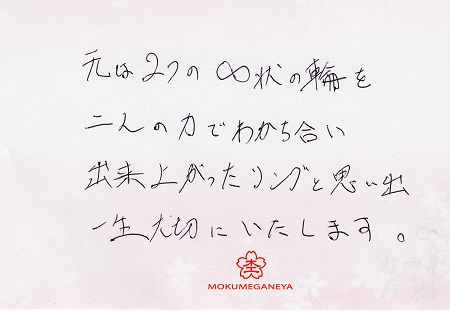 元は2つの∞状の輪を
二人の力でわかち合い
出来上がったリングと思い出
一生大切にいたします。
杢
MOKUMEGANEYA